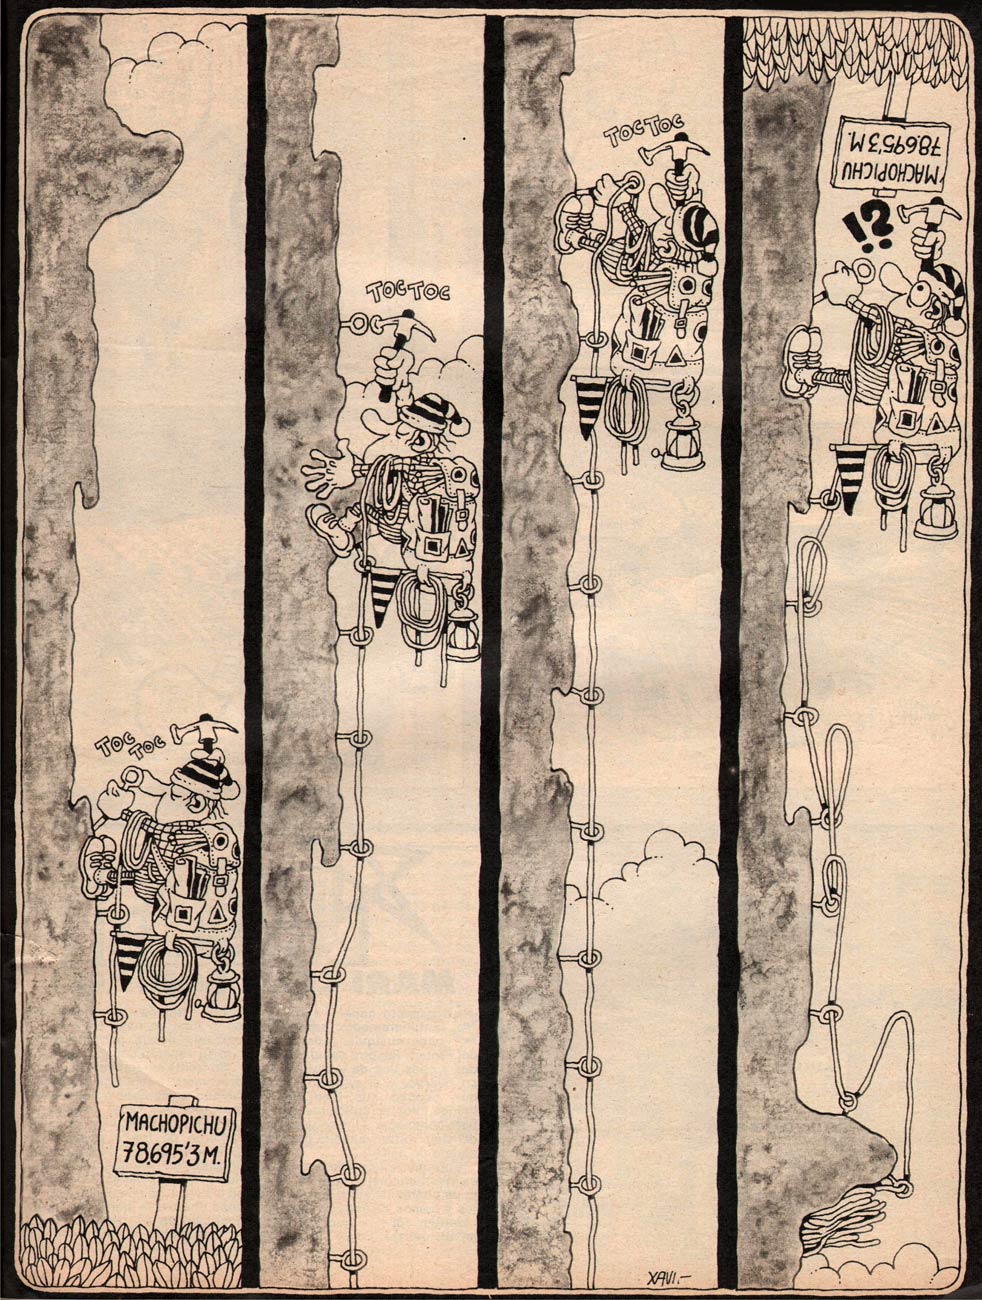 TOC
TOC
MACHOPICHU
78.695'3 M.
TOC TOC
TOC TOC
XAVI.-
MACHOPICHU
78.695'3 M.
!?